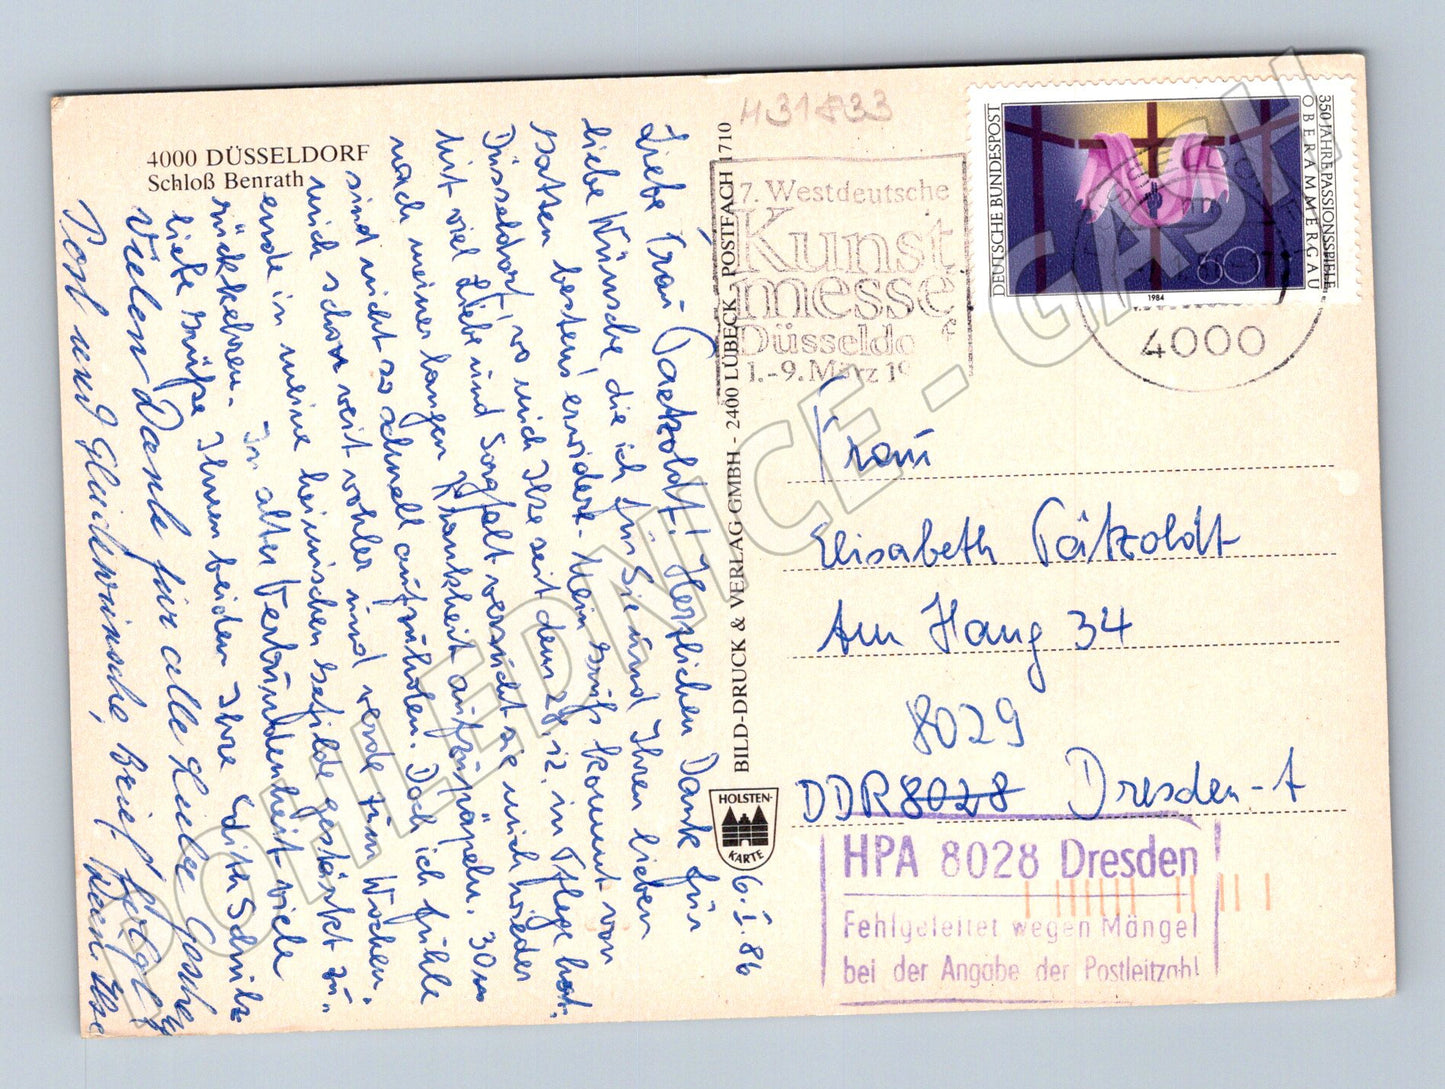 4000 DÜSSELDORF
Schloß Benrath
Liebe Frau Paetzoldt! Herzlichen Dank für
liebe Wünsche die ich für Sie und Ihren lieben
Gatten bestens erwidere. Mein Gruß kommt von
Düsseldorf, wo mich Ilse seit dem 28.12. in Pflege hat.
Mit viel Liebe und Sorgfalt versucht sie mich wieder
nach meiner langen Krankheit aufzupäpeln. 30
sind nicht so schnell aufzuholen. Doch ich fühle
mich schon weit wohler und werde zum Wochen-
ende in meine heimischen Gefilde gestärkt zu-
rückkehren. In alter Verbundenheit viele
liebe Grüße Ihnen beiden Ihre Edith
Vielen Dank für alle Liebe
Post und Glückwünsche, Brief folgt
Ilse
6.1.86
BILD-DRUCK & VERLAG GMBH - 2400 LÜBECK - POSTFACH 1710
HOLSTEN-
KARTE
H31833
7. Westdeutsche
Kunst
messe
Düsseldorf
1.-9. März 19
DEUTSCHE BUNDESPOST
350 JAHRE PASSIONSSPIELE
OBERAMMERGAU
60
1984
4000
Frau
Elisabeth Pätzoldt
Am Hang 34
8029
DDR 8028 Dresden-A
HPA 8028 Dresden
Fehlgeleitet wegen Mängel
bei der Angabe der Postleitzahl
POHLEDNICE - GASH